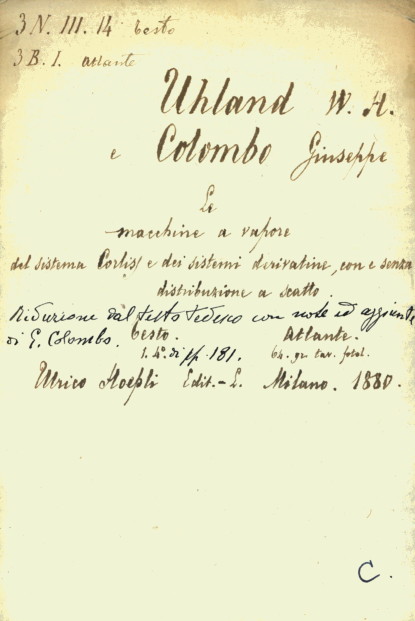 3 N. III. 14 testo
3 B. I. atlante
Uhland W. H.
e Colombo Giuseppe
Le
macchine a vapore
del sistema Corliss e dei sistemi derivatine, con e senza
distribuzione a scatto
Riduzione dal testo tedesco con note ed aggiunte
di G. Colombo. Testo. Atlante.
1. 4°. di pp. 181. 64. gr. tav. fotol.
Ulrico Hoepli Edit.-L. Milano. 1880.
C.